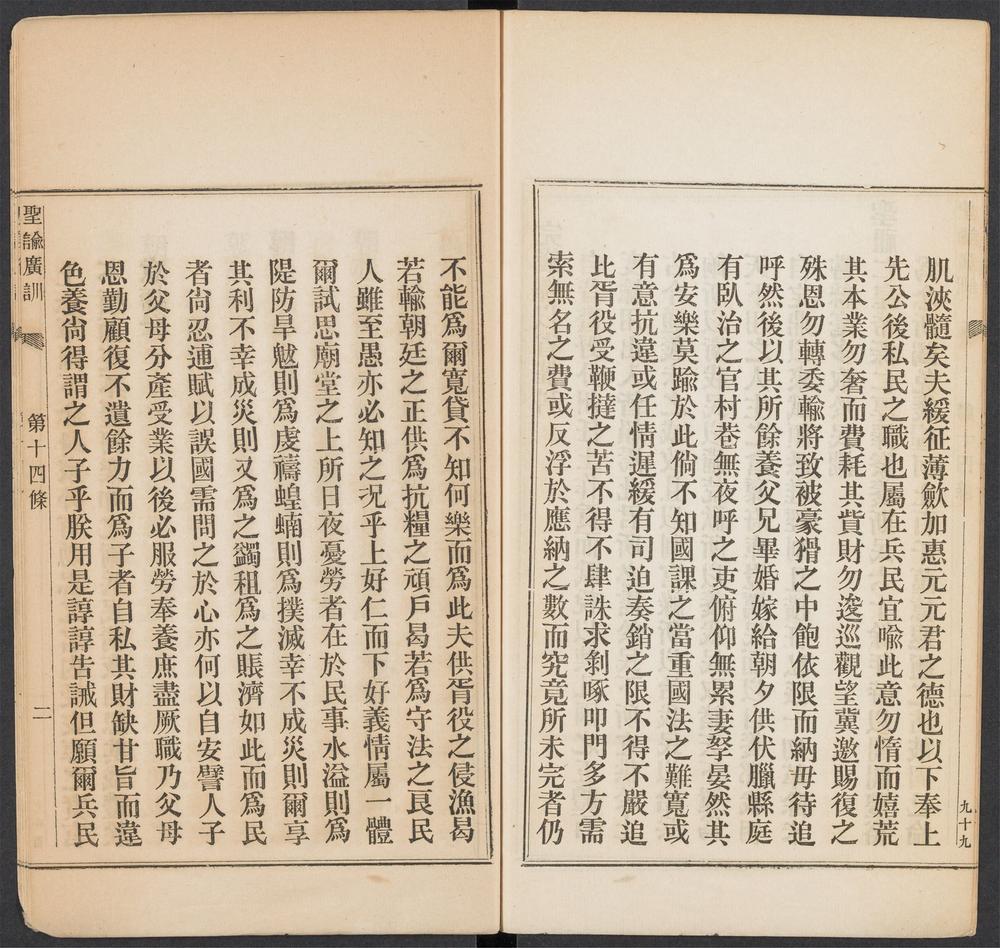 肌浹髓矣夫緩征薄歛加惠元元君之德也以下奉上
先公後私民之職也屬在兵民宜喩此意勿惰而嬉荒
其本業勿奢而費耗其貲財勿逡巡觀望冀邀賜復之
殊恩勿轉委輸將致被豪猾之中飽依限而納毋待追
呼然後以其所餘養父兄畢婚嫁給朝夕供伏臘縣庭
有臥治之官村巷無夜呼之吏俯仰無累妻孥晏然其
爲安樂莫踰於此倘不知國課之當重國法之難寬或
有意抗違或任情遲緩有司迫奏銷之限不得不嚴追
比胥役受鞭撻之苦不得不肆誅求剝啄叩門多方需
索無名之費或反浮於應納之數而究竟所未完者仍
九十九
不能爲爾寬貸不知何樂而爲此夫供胥役之侵漁曷
若輸朝廷之正供爲抗糧之頑戶曷若爲守法之良民
人雖至愚亦必知之况乎上好仁而下好義情屬一體
爾試思廟堂之上所日夜憂勞者在於民事水溢則爲
隄防旱魃則爲虔禱蝗蝻則爲撲滅幸不成災則爾享
其利不幸成災則又爲之蠲租爲之賑濟如此而爲民
者尙忍逋賦以誤國需問之於心亦何以自安譬人子
於父母分產受業以後必服勞奉養庶盡厥職乃父母
恩勤顧復不遺餘力而爲子者自私其財缺甘旨而違
色養尙得謂之人子乎朕用是諄諄吿誡但願爾兵民
聖諭廣訓
第十四條
二